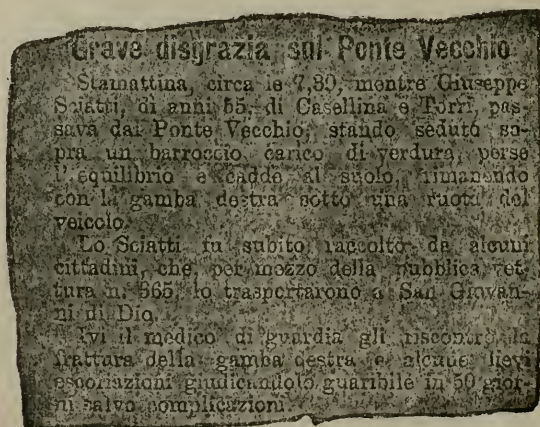 Grave disgrazia sul Ponte Vecchio
Stamattina, circa le 7,30, mentre Giuseppe
Sciatti, di anni 55, di Casellina e Torri, pas-
sava dal Ponte Vecchio, stando seduto so-
pra un barroccio carico di verdura, perse
l'equilibrio e cadde al suolo rimanendo
con la gamba destra sotto una ruota del
veicolo.
Lo Sciatti fu subito raccolto da alcuni
cittadini, che, per mezzo della pubblica vet-
tura n. 365, lo trasportarono a San Giovan-
ni di Dio.
Ivi il medico di guardia gli riscontrò la
frattura della gamba destra e alcune lievi
escoriazioni giudicandolo guaribile in 50 gior-
ni salvo complicazioni.